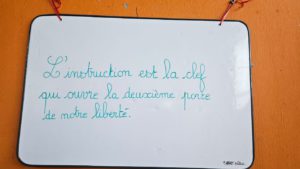 L'instruction est la clef
qui ouvre la deuxième porte
de notre liberté.